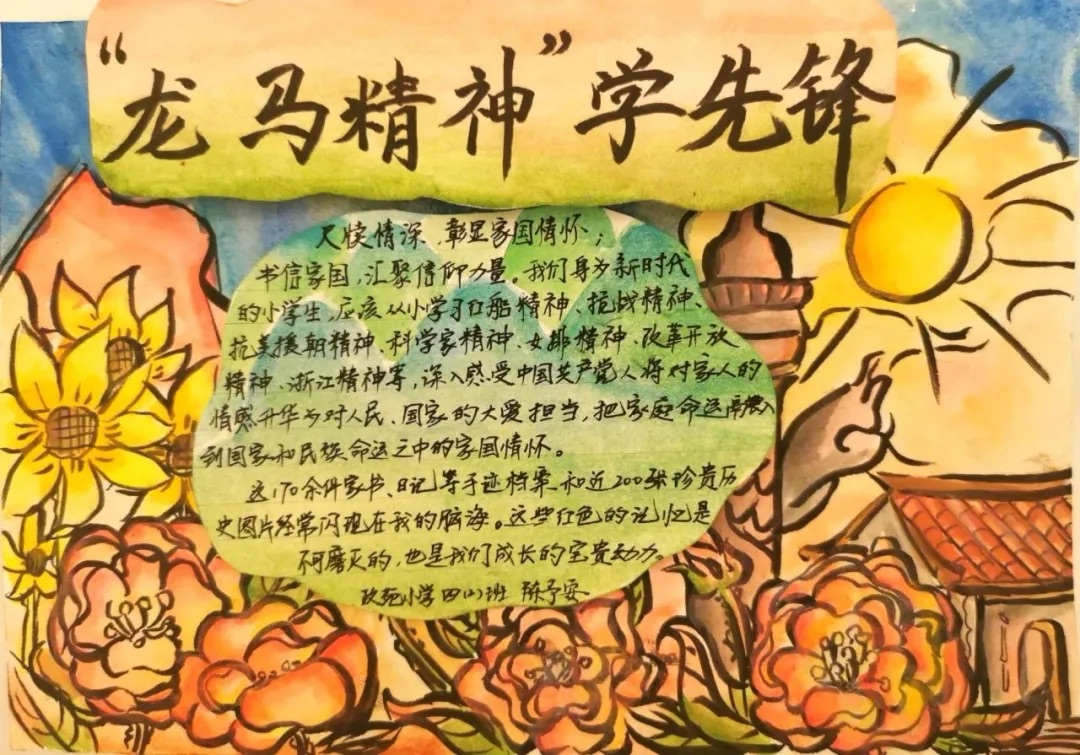 “龙马精神”学先锋
尺牍情深,彰显家国情怀;
书信家国,汇聚信仰力量。我们身为新时代
的小学生,应该从小学习红船精神、抗战精神、
抗美援朝精神、科学家精神、女排精神、改革开放
精神、浙江精神等,深入感受中国共产党人将对家人的
情感升华为对人民、国家的大爱担当,把家庭命运融入
到国家和民族命运之中的家国情怀。
这170余件家书、日记等手迹档案和近200张珍贵历
史图片经常闪现在我的脑海。这些红色的记忆是
不可磨灭的,也是我们成长的宝贵动力。
小学四(1)班 陈予安